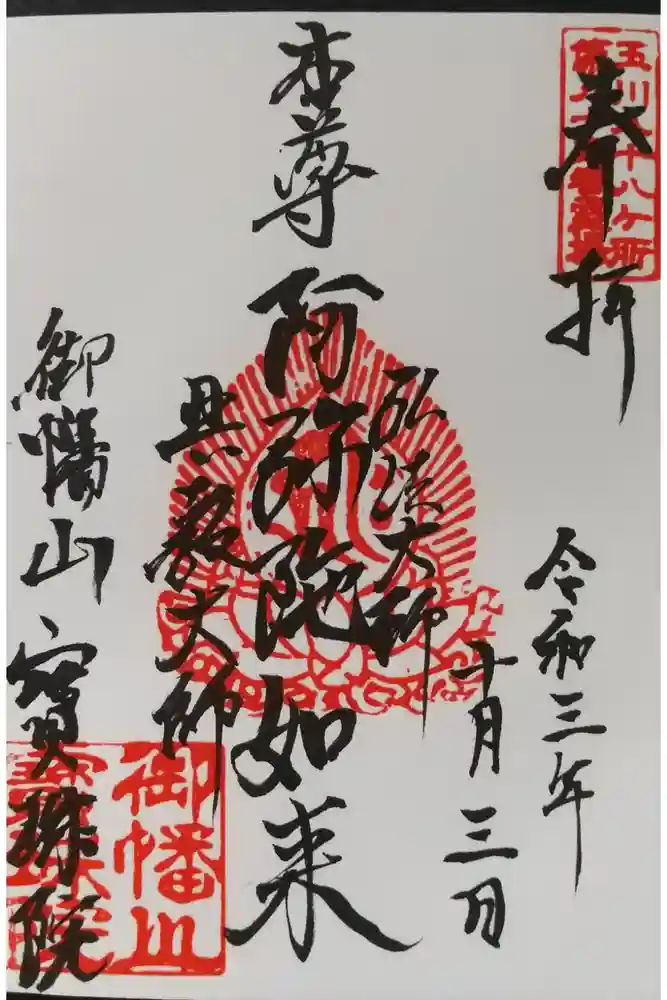 奉拝
玉川八十八ヶ所
令和三年
十月三日
本尊 阿弥陀如来
弘法大師
興教大師
御幡山 寳珠院
御幡山